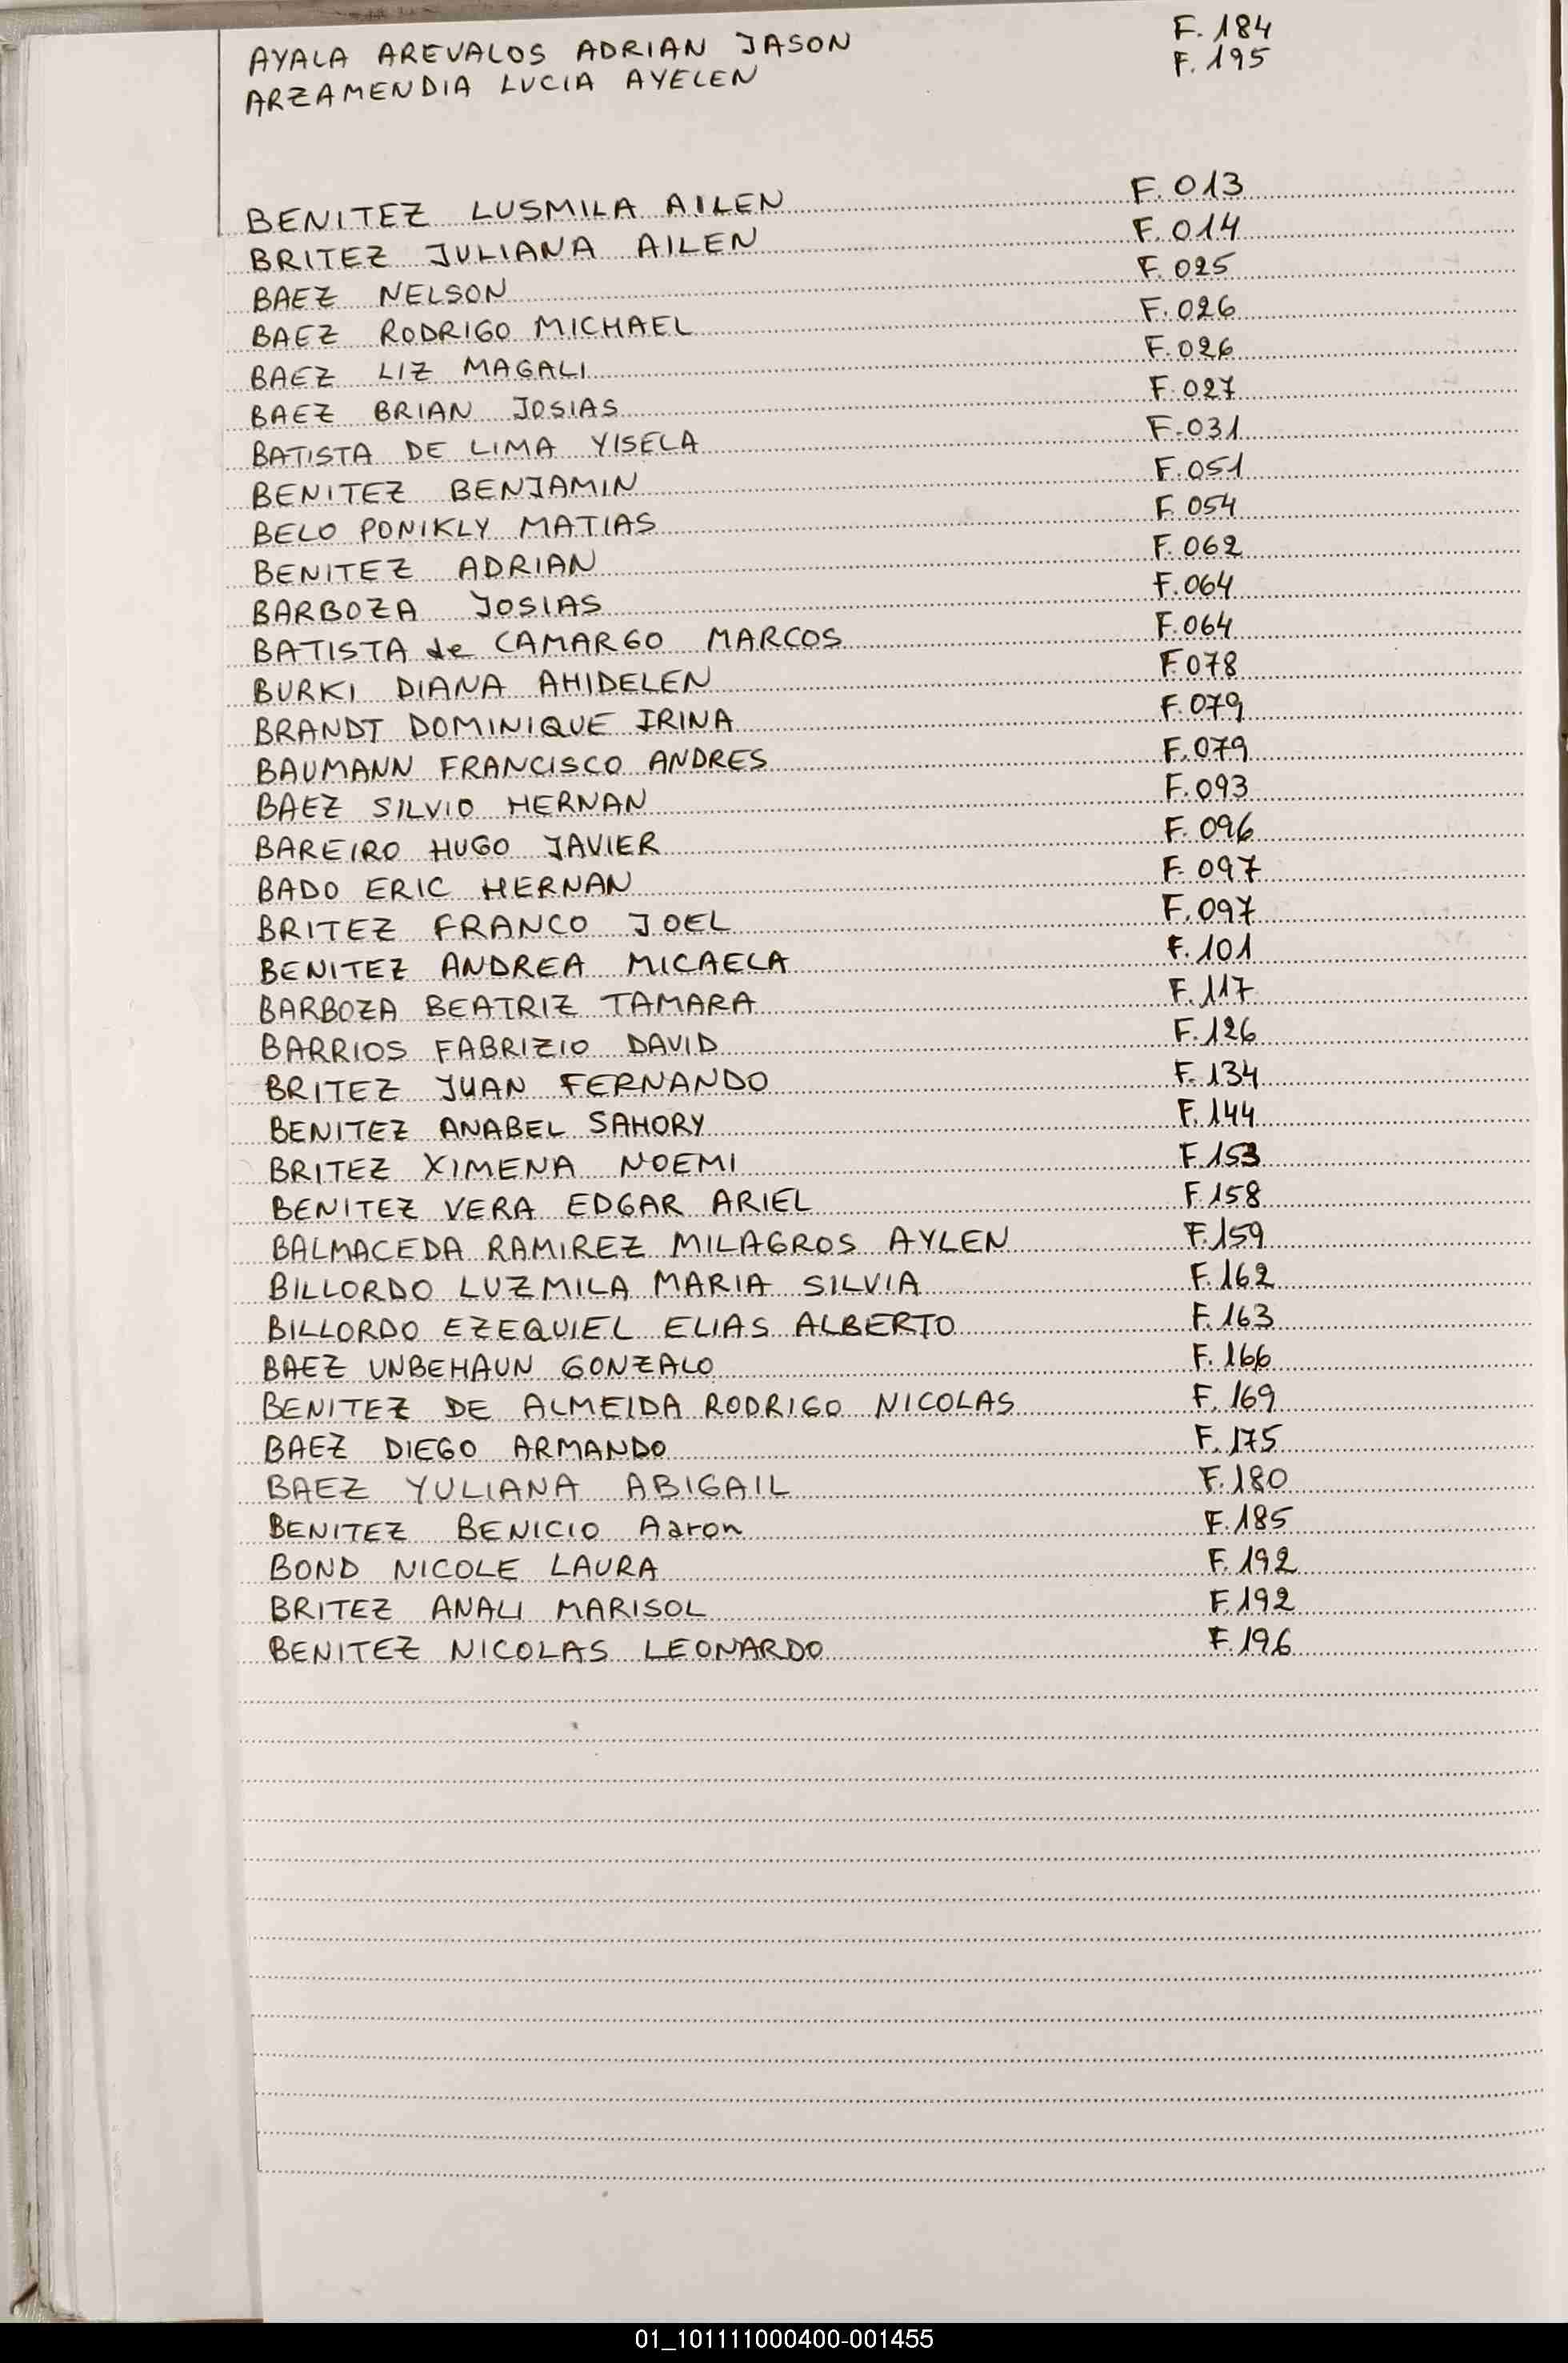 AYALA AREVALOS ADRIAN JASON F. 184
ARZAMENDIA LUCIA AYELEN F. 195
BENITEZ LUSMILA AILEN F. 013
BRITEZ JULIANA AILEN F. 014
BAEZ NELSON F. 025
BAEZ RODRIGO MICHAEL F. 026
BAEZ LIZ MAGALI F. 026
BAEZ BRIAN JOSIAS F. 027
BATISTA DE LIMA YISELA F. 031
BENITEZ BENJAMIN F. 051
BELO PONIKLY MATIAS F. 054
BENITEZ ADRIAN F. 062
BARBOZA JOSIAS F. 064
BATISTA de CAMARGO MARCOS F. 064
BURKI DIANA AHIDELEN F. 078
BRANDT DOMINIQUE IRINA F. 079
BAUMANN FRANCISCO ANDRES F. 079
BAEZ SILVIO HERNAN F. 093
BAREIRO HUGO JAVIER F. 096
BADO ERIC HERNAN F. 097
BRITEZ FRANCO JOEL F. 097
BENITEZ ANDREA MICAELA F. 101
BARBOZA BEATRIZ TAMARA F. 117
BARRIOS FABRIZIO DAVID F. 126
BRITEZ JUAN FERNANDO F. 134
BENITEZ ANABEL SAHORY F. 144
BRITEZ XIMENA NOEMI F. 153
BENITEZ VERA EDGAR ARIEL F. 158
BALMACEDA RAMIREZ MILAGROS AYLEN F. 159
BILLORDO LUZMILA MARIA SILVIA F. 162
BILLORDO EZEQUIEL ELIAS ALBERTO F. 163
BAEZ UNBEHAUN GONZALO F. 166
BENITEZ DE ALMEIDA RODRIGO NICOLAS F. 169
BAEZ DIEGO ARMANDO F. 175
BAEZ YULIANA ABIGAIL F. 180
BENITEZ BENICIO Aaron F. 185
BOND NICOLE LAURA F. 192
BRITEZ ANALI MARISOL F. 192
BENITEZ NICOLAS LEONARDO F. 196
01_101111000400-001455